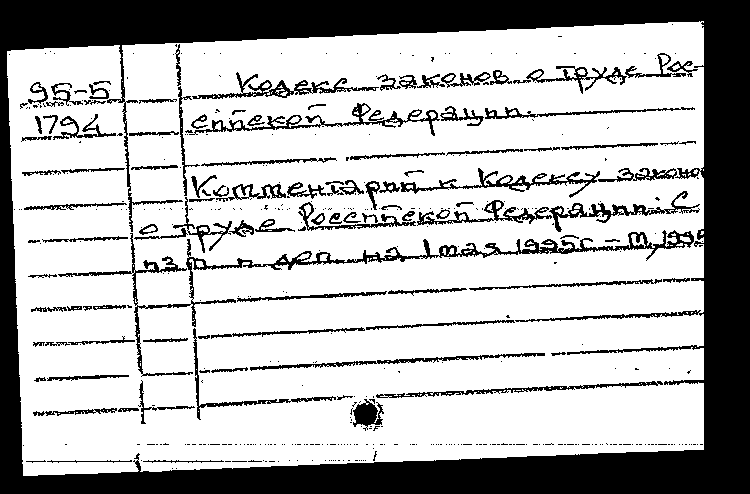 95-5 Кодекс законов о труде Рос-
1794 сийской Федерации.
Комментарий к Кодексу законо
о труде Российской Федерации: С
изм и доп. на 1 мая 1995г - М, 1995